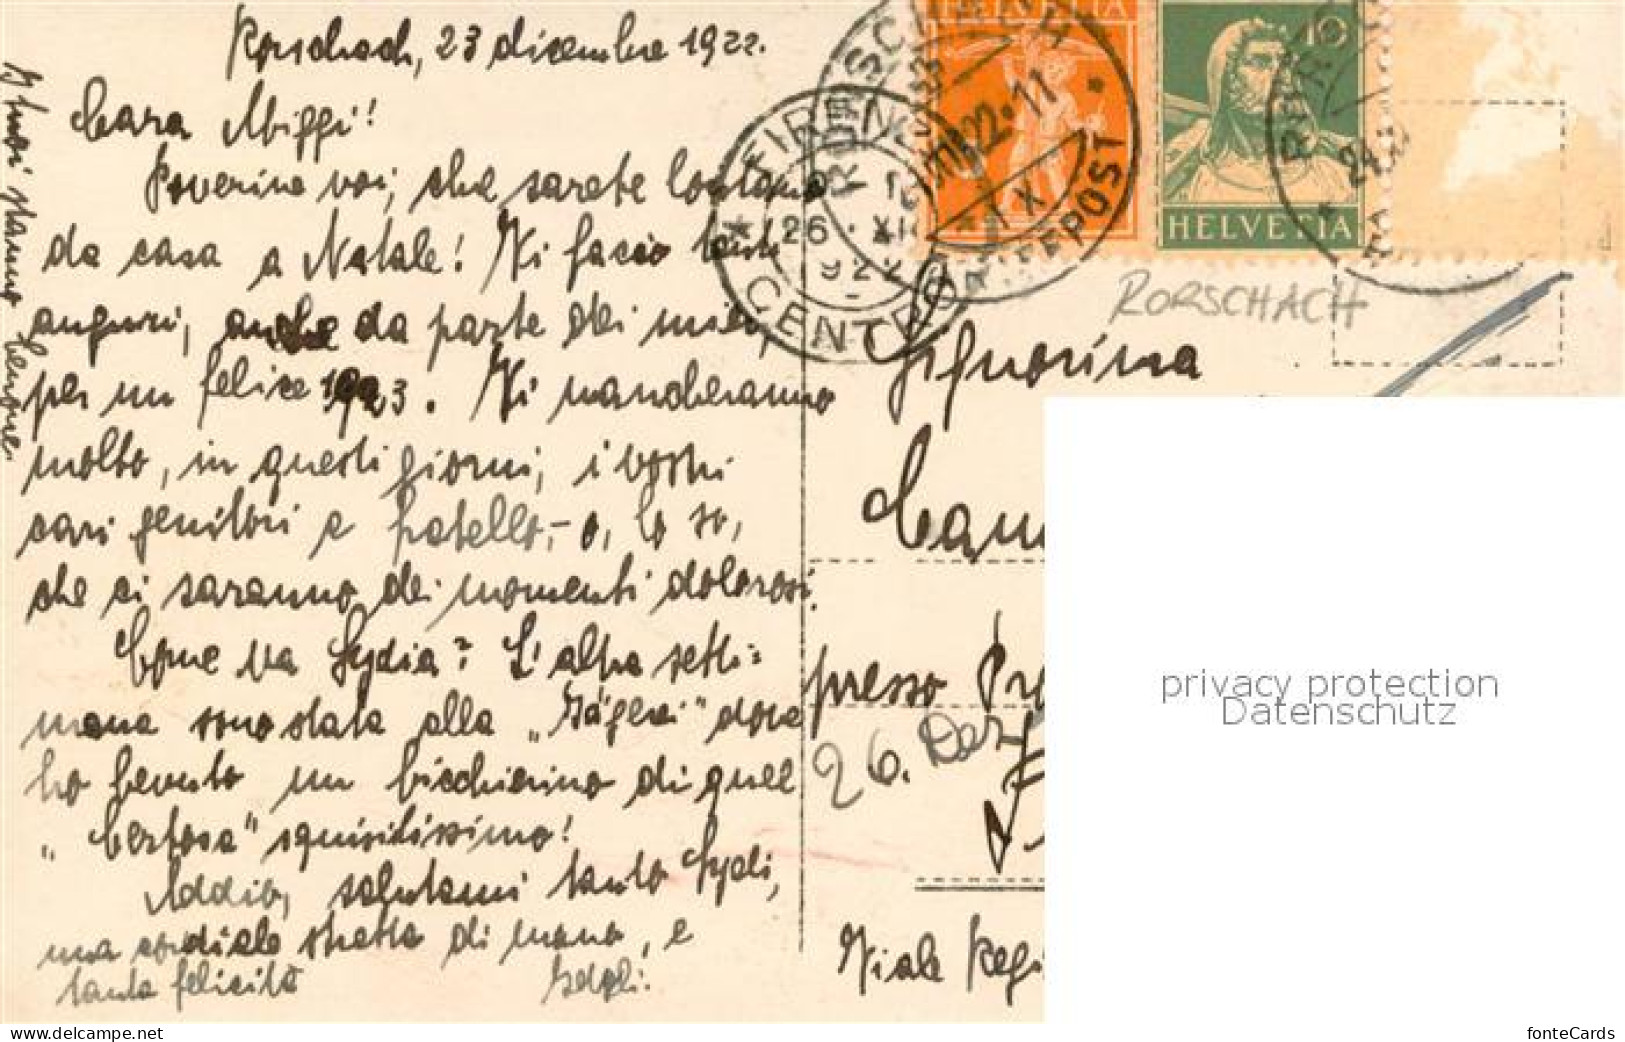 Rorschach, 23 dicembre 1922.
Cara Miggi!
Poverine voi, che sarete lontano
da casa a Natale! Vi faccio tanti
auguri, anche da parte dei miei,
per un felice 1923. Vi mancheranno
molto, in questi giorni, i vostri
cari genitori e fratello, – o, lo so,
che ci saranno dei momenti dolorosi.
Come va Lydia? L'altra setti=
mana sono stata alla „ " dove
ho bevuto un bicchierino di quel
„Certosa" squisitissimo!
Addio, salutami tanto Lydi,
una cordiale stretta di mano, e
tanta felicità
I tuoi stanno benone.
HELVETIA
10
HELVETIA
RORSCHACH
BRIEFPOST
22.11
FIRENZE
26. XII
922
CENTRO
24
RORSCHACH
Signorina
presso
26. Dez
Viale
privacy protection
Datenschutz
www.ansichtskarten-center.de
fonteCards